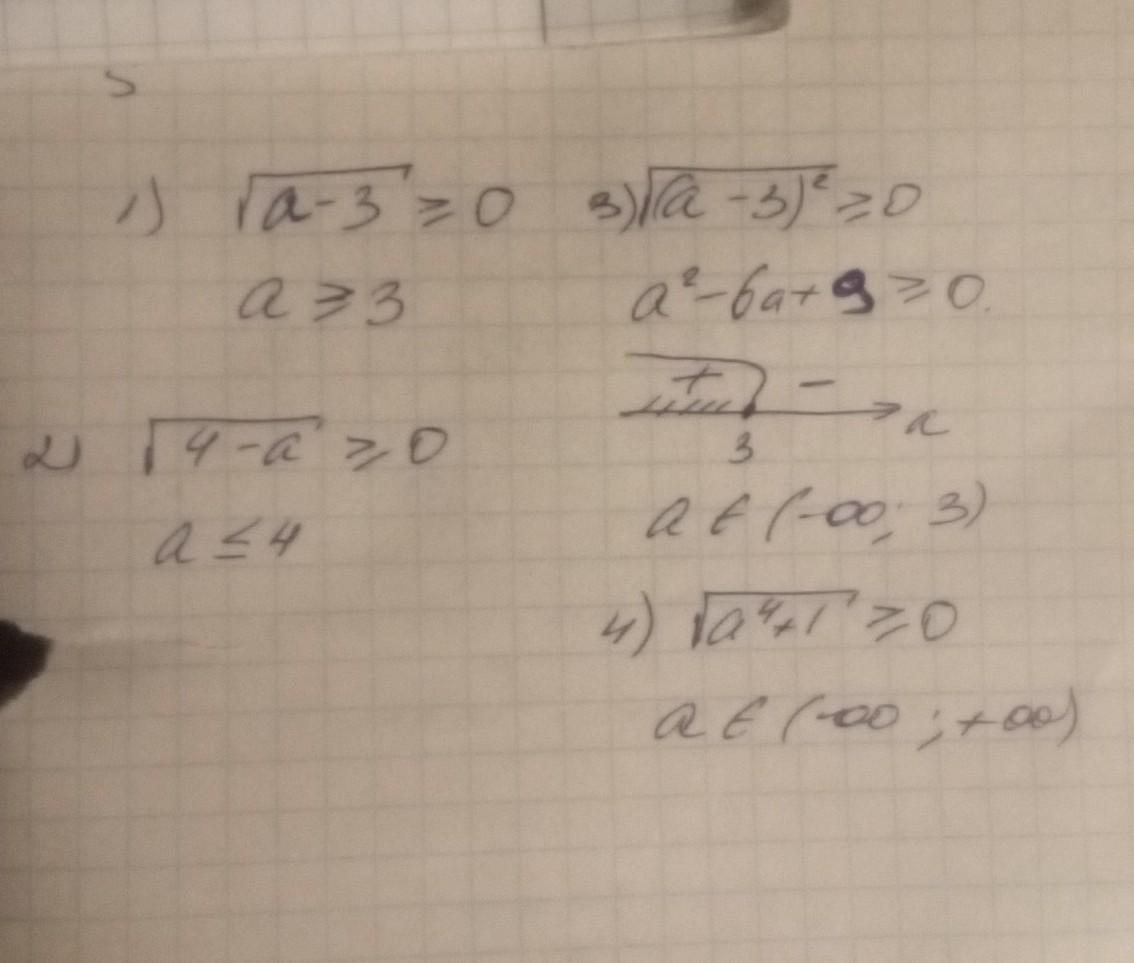 5
1) √(a-3) ≥ 0
a ≥ 3
2) √(4-a) ≥ 0
a ≤ 4
3) √((a-3)²) ≥ 0
a²-6a+9 ≥ 0.
+ -
3 a
a ∈ (-∞; 3)
4) √(a⁴+1) ≥ 0
a ∈ (-∞; +∞)